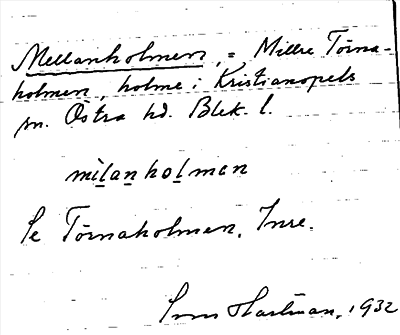 Mellanholmen, = Millre Törna-
holmen, holme i Kristianopels
sn. Östra hd. Blek. l.
mìlanholman
Se Törnaholmen, Inre.
Hartman, 1932